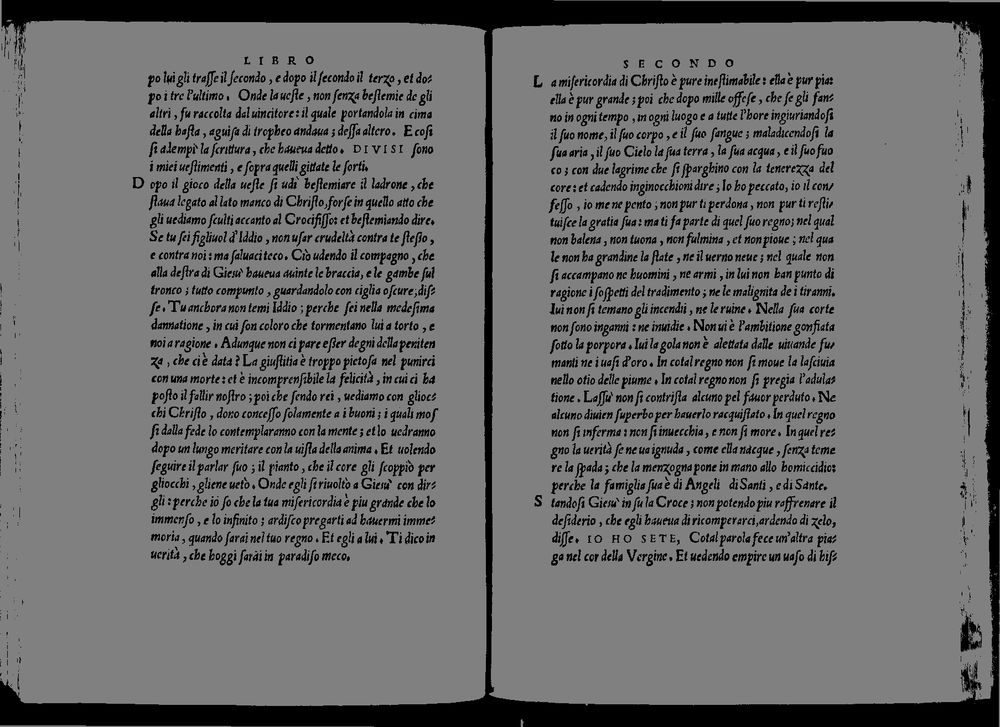 LIBRO
po lui gli trasse il secondo, e dopo il secondo il terzo, et do=
po i tre l'ultimo. Onde la ueste, non senza bestemie de gli
altri, fu raccolta dal uincitore: il quale portandola in cima
della hasta, a guisa di tropheo andaua; dessa altero. E cosi
si adempì la scrittura, che haueua detto. DIVISI sono
i miei uestimenti, e sopra quelli gittate le sorti.
Dopo il gioco della ueste si udì bestemiare il ladrone, che
staua legato al lato manco di Christo, forse in quello atto che
gli uediamo sculti accanto al Crocifisso: et bestemiando dire.
Se tu sei figliuol d'Iddio, non usar crudeltà contra te stesso,
e contra noi: ma saluaci teco. Ciò udendo il compagno, che
alla destra di Giesù haueua auinte le braccia, e le gambe sul
tronco; tutto compunto, guardandolo con ciglia oscure, dis=
se. Tu anchora non temi Iddio; perche sei nella medesima
dannatione, in cui son coloro che tormentano lui a torto, e
noi a ragione. Adunque non ci pare esser degni della peniten
za, che ci è data? La giustitia è troppo pietosa nel punirci
con una morte: et è incomprensibile la felicità, in cui ci ha
posto il fallir nostro; poi che sendo rei, uediamo con glioc=
chi Christo, dono concesso solamente a i buoni; i quali mos
si dalla fede lo contemplaranno con la mente; et lo uedranno
dopo un lungo meritare con la uista della anima. Et uolendo
seguire il parlar suo; il pianto, che il core gli scoppiò per
gliocchi, gliene uetò. Onde egli si riuolto a Giesù con dir=
gli: perche io so che la tua misericordia è piu grande che lo
immenso, e lo infinito; ardisco pregarti ad hauermi imme=
moria, quando sarai nel tuo regno. Et egli a lui. Ti dico in
uerità, che hoggi sarai in paradiso meco.
SECONDO
La misericordia di Christo è pure inestimabile: ella è pur pia:
ella è pur grande; poi che dopo mille offese, che se gli fan=
no in ogni tempo, in ogni luogo e a tutte l'hore ingiuriandosi
il suo nome, il suo corpo, e il suo sangue; maladicendosi la
sua aria, il suo Cielo la sua terra, la sua acqua, e il suo fuo
co; con due lagrime che si sparghino con la tenerezza del
core: et cadendo inginocchioni dire; Io ho peccato, io il con=
fesso, io me ne pento; non pur ti perdona, non pur ti resti=
tuisce la gratia sua: ma ti fa parte di quel suo regno; nel qual
non balena, non tuona, non fulmina, et non pioue; nel qua
le non ha grandine la state, ne il uerno neue; nel quale non
si accampano ne huomini, ne armi, in lui non han punto di
ragione i sospetti del tradimento; ne le malignita de i tiranni.
Iui non si temano gli incendii, ne le ruine. Nella sua corte
non sono inganni: ne inuidie. Non ui è l'ambitione gonfiata
sotto la porpora. Iui la gola non è alettata dalle uiuande fu=
manti ne i uasi d'oro. In cotal regno non si moue la lasciuia
nello otio delle piume. In cotal regno non si pregia l'adula=
tione. Lassù non si contrista alcuno pel fauor perduto. Ne
alcuno diuien superbo per hauerlo racquistato. In quel regno
non si inferma: non si inuecchia, e non si more. In quel re=
gno la uerità se ne ua ignuda, come ella nacque, senza teme
re la spada; che la menzogna pone in mano allo homiccidio:
perche la famiglia sua è di Angeli di Santi, e di Sante.
Standosi Giesù in su la Croce; non potendo piu raffrenare il
desiderio, che egli haueua di ricomperarci, ardendo di zelo,
disse. IO HO SETE, Cotal parola fece un'altra pia=
ga nel cor della Vergine. Et uedendo empire un uaso di his=